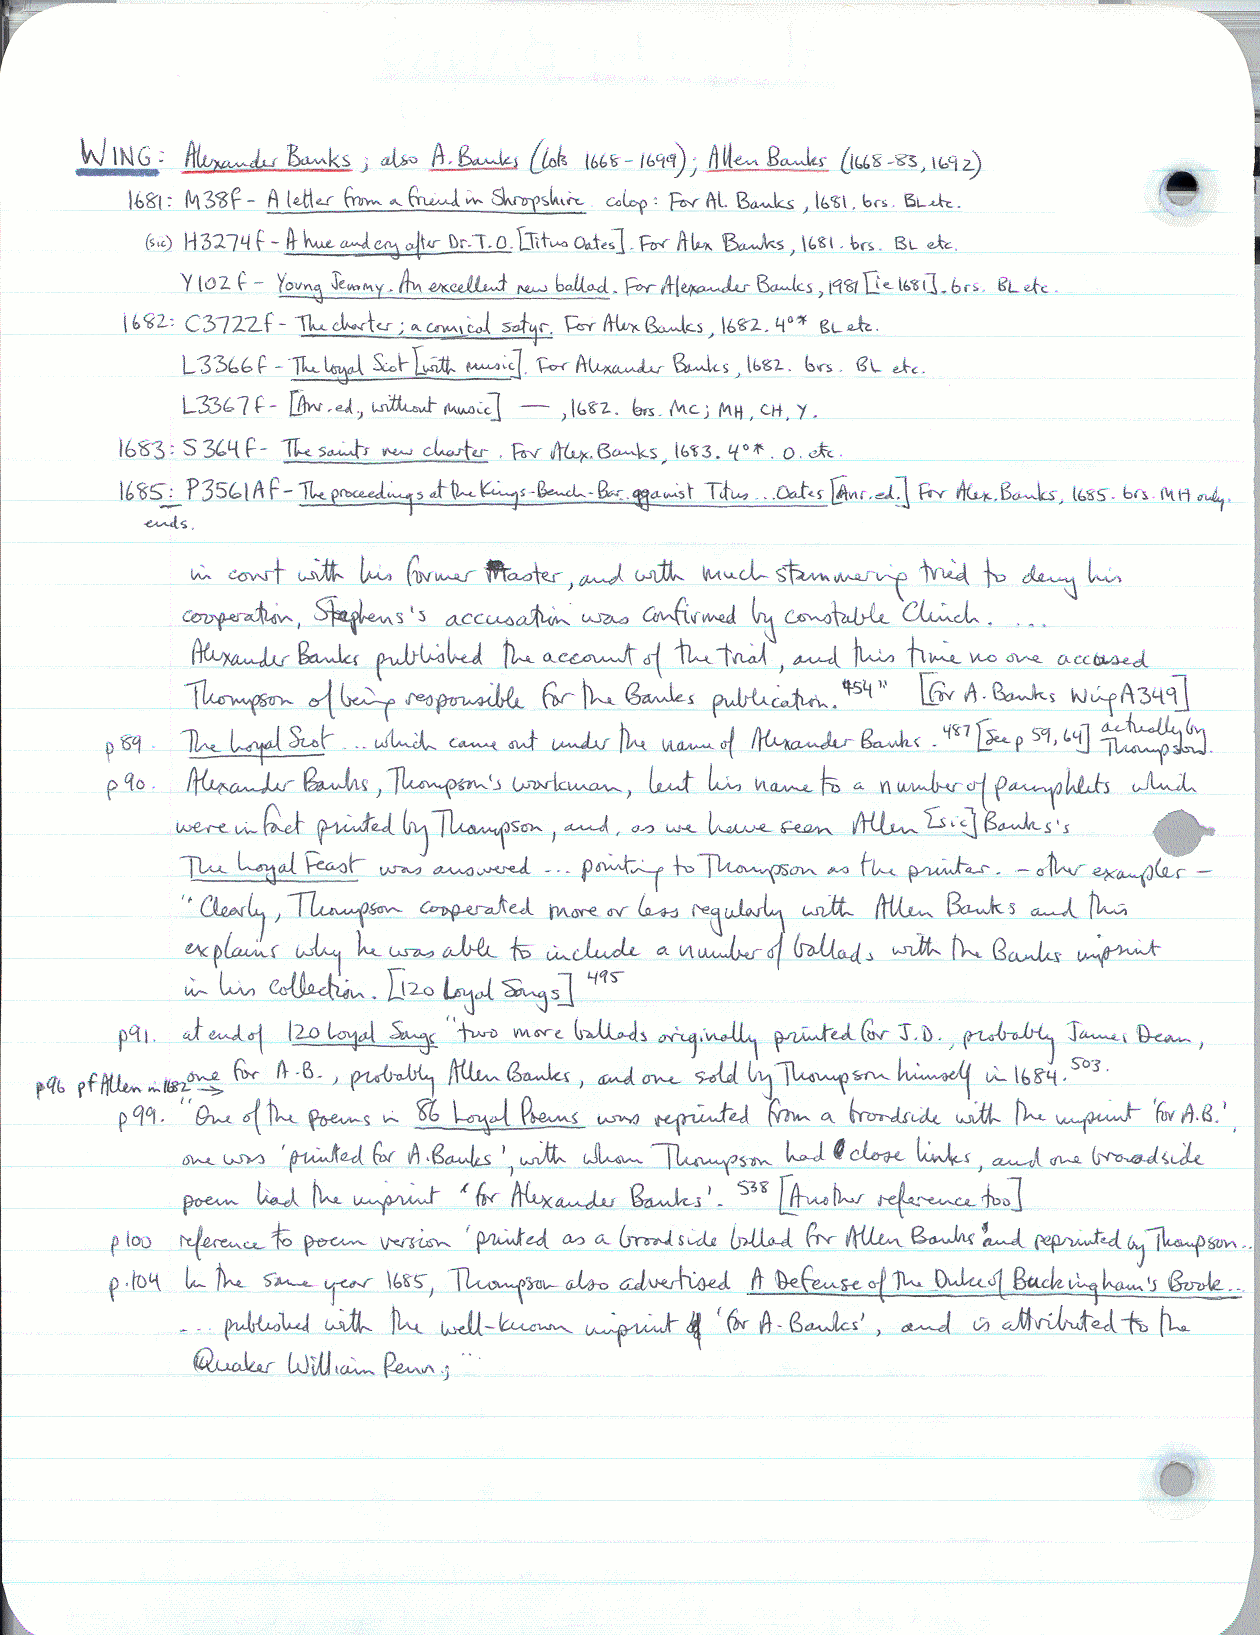 WING: Alexander Banks; also A. Banks (lots 1668-1699); Allen Banks (1668-83, 1692)
1681: M38f- A letter from a friend in Shropshire. colop: For Al. Banks, 1681. brs. BL etc.
(sic) H3274f- A hue and cry after Dr. T.O. [Titus Oates]. For Alex Banks, 1681. brs. BL etc.
Y102f- Young Jemmy. An excellent new ballad. For Alexander Banks, 1981 [ie 1681]. brs. BL etc.
1682: C3722f- The charter; a comical satyr. For Alex Banks, 1682. 4º* BL etc.
L3366f- The loyal Scot [with music]. For Alexander Banks, 1682. brs. BL etc.
L3367f- [Anr. ed., without music] —, 1682. brs. MC; MH, CH, Y.
1683: S364f- The saints new charter. For Alex. Banks, 1683. 4º*. O. etc.
1685: P3561Af- The proceedings at the Kings-Bench-Bar against Titus... Oates [Anr. ed.] For Alex. Banks, 1685. brs. MH only.
ends.
in court with his former Master, and with much stammering tried to deny his
cooperation, Stephens's accusation was confirmed by constable Clinch. ....
Alexander Banks published the account of the trial, and this time no one accused
Thompson of being responsible for the Banks publication. 454" [for A. Banks Wing A349]
p89. The Loyal Scot ... which came out under the name of Alexander Banks. 487 [See p 59, 64] actually by Thompson.
p90. Alexander Banks, Thompson's workman, lent his name to a number of pamphlets which
were in fact printed by Thompson, and, as we have seen Allen [sic] Banks's
The Loyal Feast was answered ... pointing to Thompson as the printer. - other examples -
"Clearly, Thompson cooperated more or less regularly with Allen Banks and this
explains why he was able to include a number of ballads with the Banks imprint
in his collection. [120 Loyal Songs] 495
p91. at end of 120 Loyal Songs "two more ballads originally printed for J.D., probably James Dean,
one for A.B., probably Allen Banks, and one sold by Thompson himself in 1684. 503.
p96 pf Allen in 1682 →
p99. "One of the poems in 86 Loyal Poems was reprinted from a broadside with the imprint 'for A.B.',
one was 'printed for A. Banks', with whom Thompson had close links, and one broadside
poem had the imprint 'for Alexander Banks'. 538 [Another reference too]
p100 reference to poem version 'printed as a broadside ballad for Allen Banks' and reprinted by Thompson...
p.104 In the same year 1685, Thompson also advertised A Defense of the Duke of Buckingham's Book...
... published with the well-known imprint 'for A. Banks', and is attributed to the
Quaker William Penn; ...